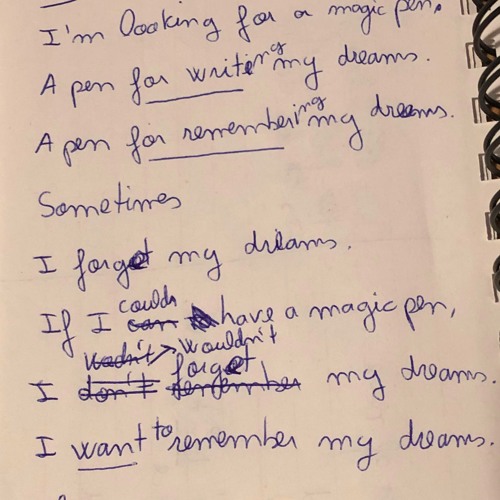 I'm looking for a magic pen.
A pen for writeing my dreams.
A pen for remembering my dreams.
Sometimes
I forget my dreams.
If I can could have a magic pen,
wouldn't
I don't remember forget my dreams.
I want to remember my dreams.